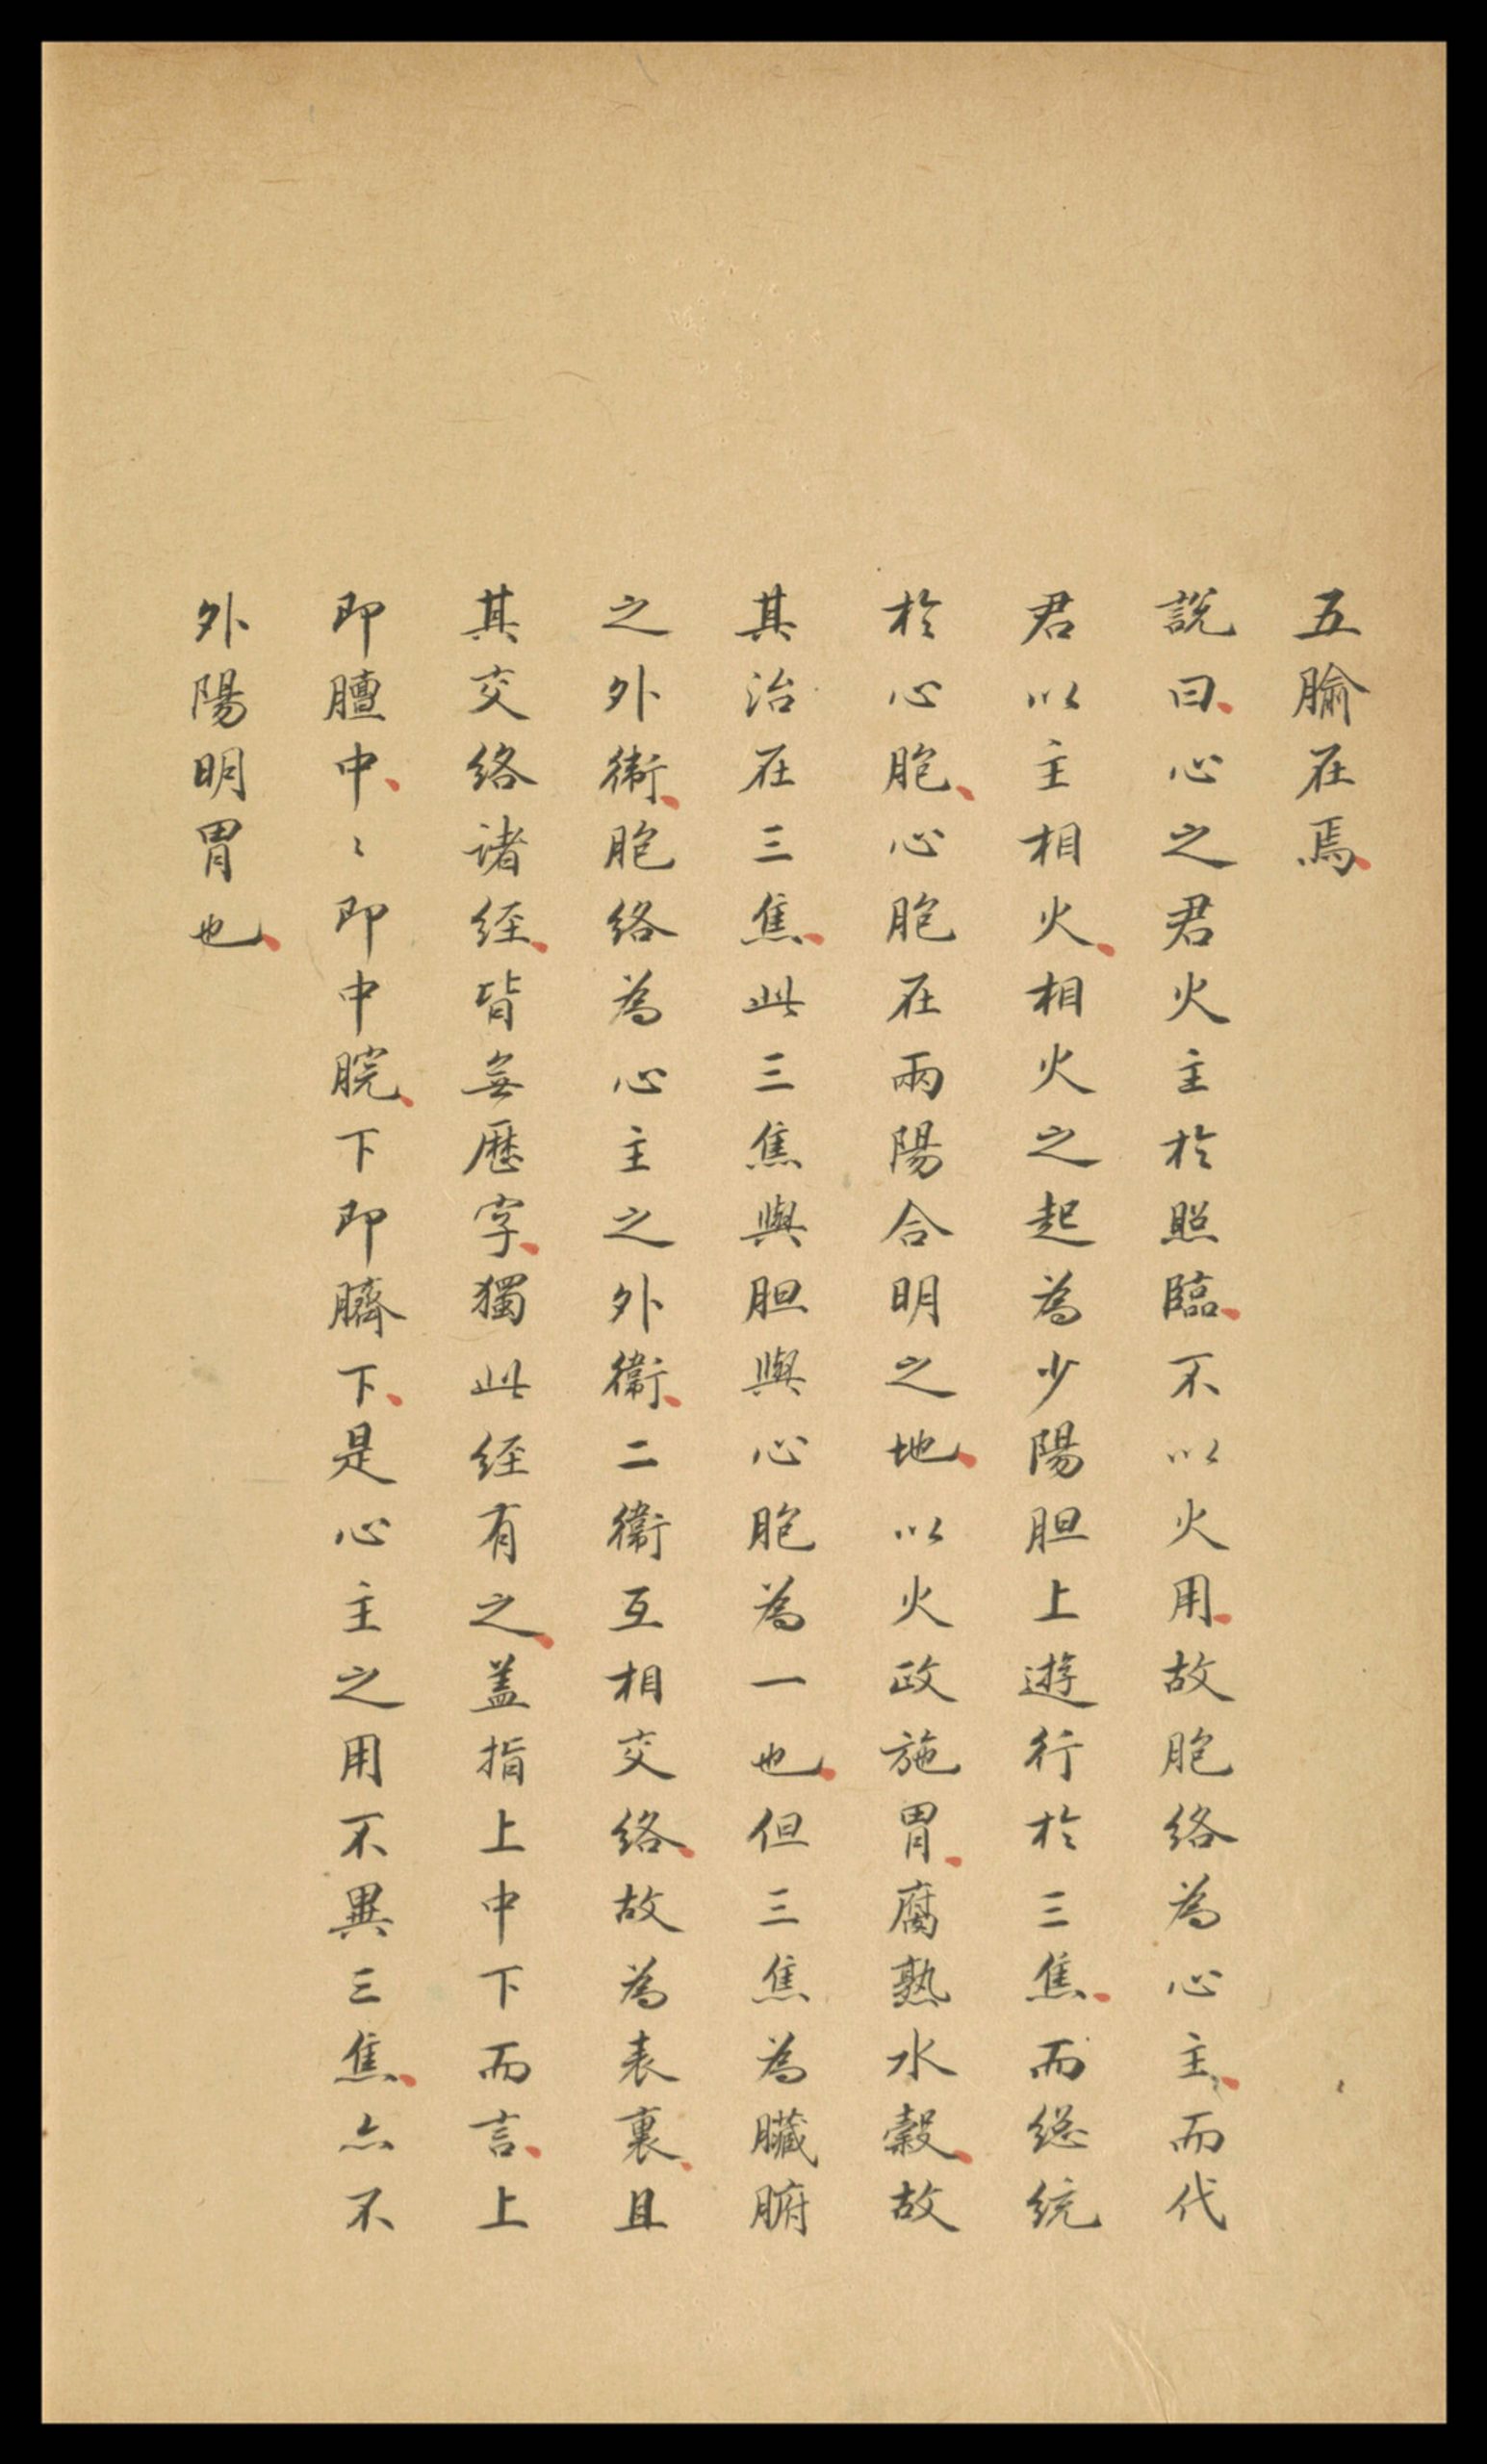 五腧在焉、
說曰、心之君火主於照臨、不以火用、故胞絡為心主、而代
君以主相火、相火之起為少陽胆上遊行於三焦、而總統
於心胞、心胞在兩陽合明之地、以火政施胃、腐熟水穀、故
其治在三焦、此三焦與胆與心胞為一也、但三焦為臟腑
之外衛、胞絡為心主之外衛、二衛互相交絡、故為表裏、且
其交絡诸経、皆無歷字、獨此経有之、盖指上中下而言、上
即膻中、〻即中脘、下即臍下、是心主之用不異三焦、亦不
外陽明胃也、